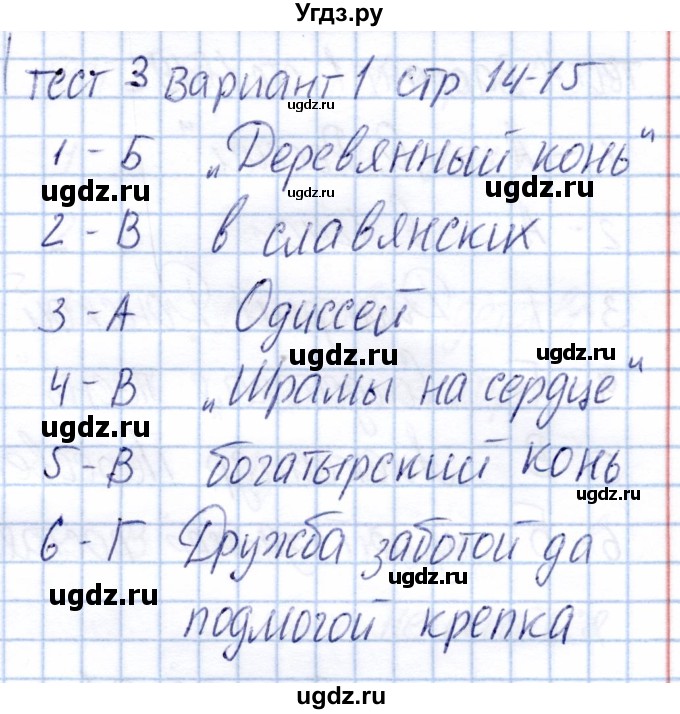 Угдз.ру
тест 3 вариант 1 стр 14-15
ugdz.ru
1 - Б „Деревянный конь"
ugdz.ru ugdz.ru ugdz.ru
2 - В в славянских
ugdz.ru
3 - А Одиссей
ugdz.ru ugdz.ru
4 - В „Шрамы на сердце"
ugdz.ru ugdz.ru
5 - В богатырский конь
ugdz.ru
6 - Г Дружба заботой да
ugdz.ru ugdz.ru
подмогой крепка
ugdz.ru